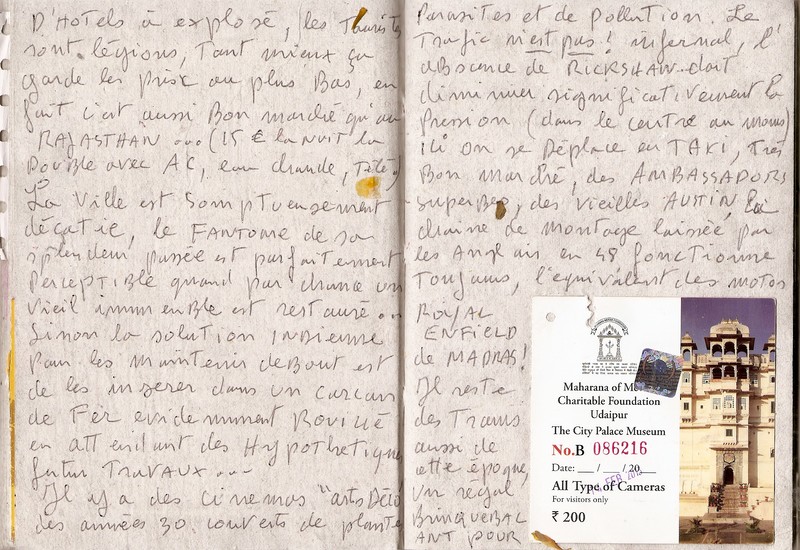 D'Hotels à explosé, les Touristes
sont légions, Tant mieux ça
garde les prix au plus Bas, en
fait c'est aussi Bon marché qu'au
RAJASTHAN ... (15 € la nuit la
Double avec AC, eau chaude, Télé)
La Ville est Somptueusement
décatie, le FANTOME de sa
splendeur passée est parfaitement
Perceptible quand par chance un
Vieil immeuble est restauré ...
Sinon la solution INDIENNE
Pour les maintenir deBout est
de les inserer dans un carcan
de Fer evidemment Rouillé
en attendant des Hypothetiques
futur TRAVAUX ...
Il y a des cinemas "arts Déco"
des années 30, couverts de plantes
Parasites et de Pollution. Le
Trafic n'est pas! infernal, l'
absence de RICKSHAW doit
diminuer significativement la
Pression (dans le centre au moins)
ici on se Déplace en TAXI, très
Bon marché, des AMBASSADORS
superbes, des vieilles AUSTIN, la
chaine de montage laissée par
les Anglais en 48 fonctionne
Toujours, l'équivalent des motos
ROYAL
ENFIELD
de MADRAS!
Il reste
des Trams
aussi de
cette époque,
un régal
BRINQUEBAL
ANT POUR
Maharana of Me
Charitable Foundation
Udaipur
The City Palace Museum
No.B 086216
Date: __ / __ / 20__
FEB 2012
All Type of Cameras
For visitors only
₹ 200